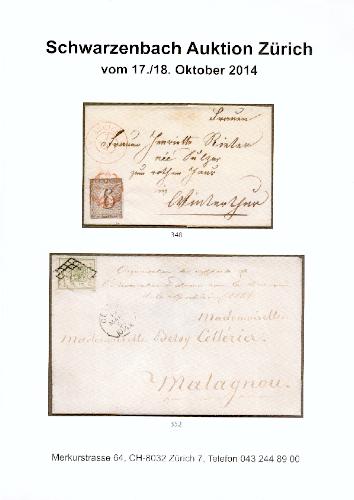 Schwarzenbach Auktion Zürich
vom 17./18. Oktober 2014
Frauen
Frauen Henriette Rieter
née Sulzer
zum rothen Haus
in
Winterthur
6
340
Mademoiselle
Mademoiselle Betsy Cellérier.
Malagnou.
352
Merkurstrasse 64, CH-8032 Zürich 7, Telefon 043 244 89 00